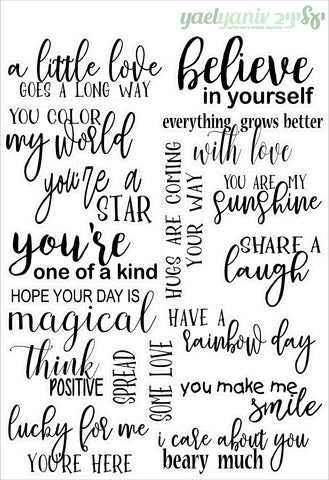 yaelyaniv יעל יניב
a little love
GOES A LONG WAY
believe
in yourself
YOU COLOR
my world
everything grows better
with love
you're a
STAR
HUGS ARE COMING
YOUR WAY
YOU ARE MY
sunshine
you're
one of a kind
SHARE A
laugh
HOPE YOUR DAY IS
magical
HAVE A
rainbow day
think
POSITIVE
SPREAD
SOME LOVE
you make me
smile
lucky for me
YOU'RE HERE
i care about you
beary much